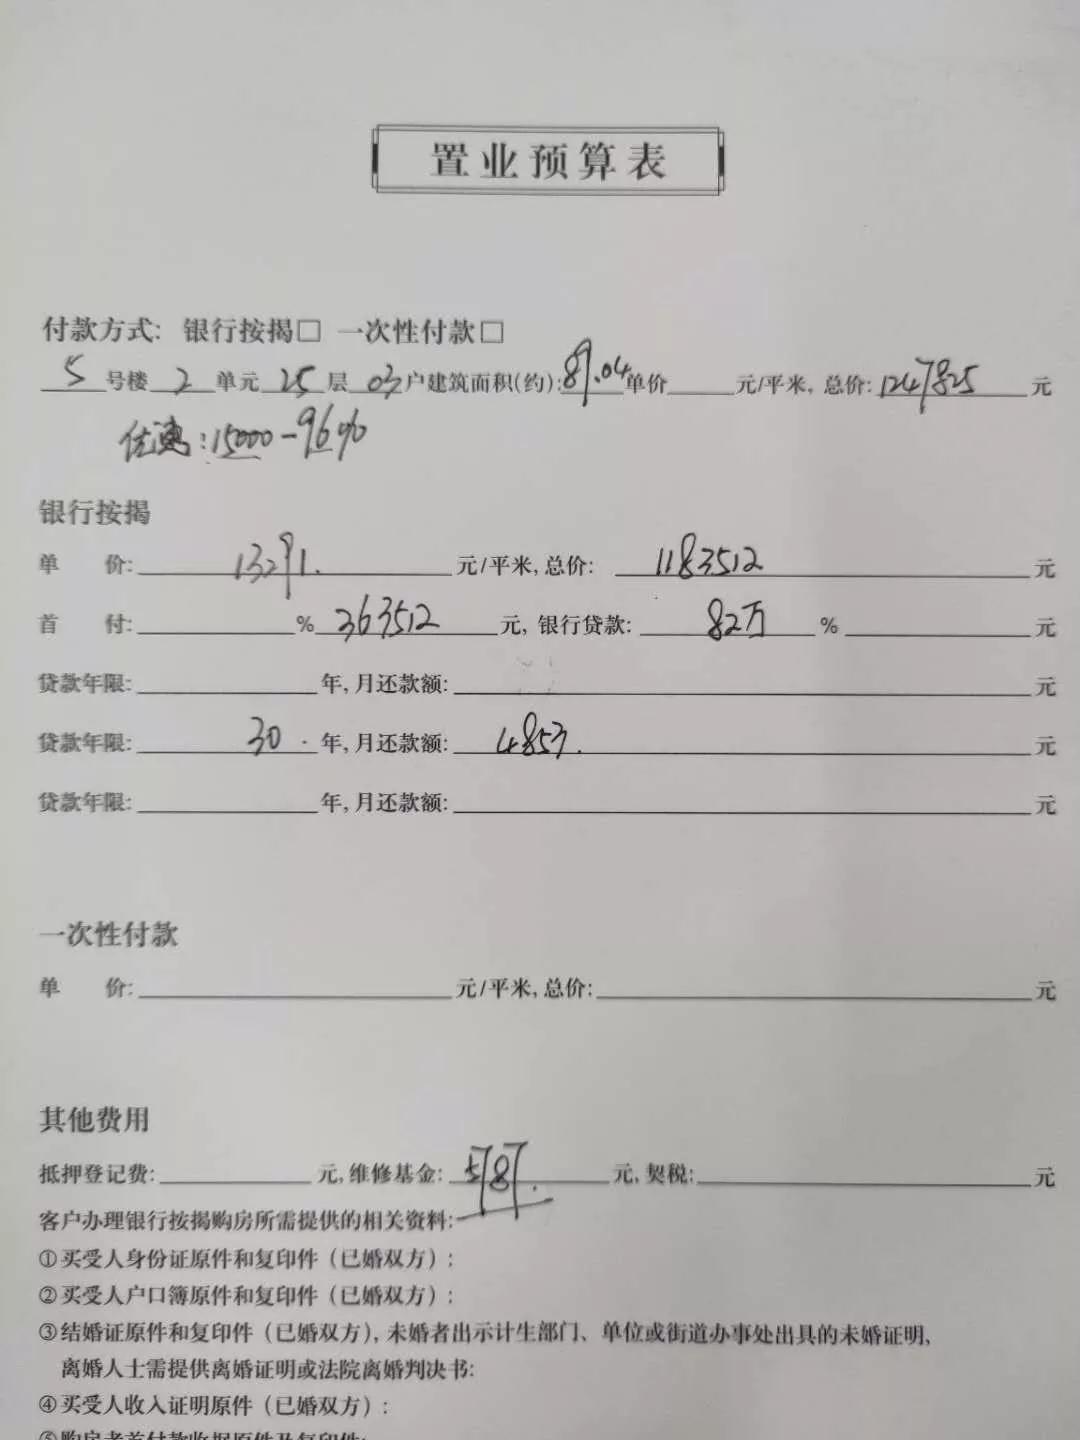 置业预算表
付款方式: 银行按揭□ 一次性付款□
5号楼 2 单元 25 层 03 户建筑面积(约): 89.04 单价____元/平米, 总价: 1247825 元
优惠: 15000-96%
银行按揭
单 价: 13291. 元/平米, 总价: 1183512 元
首 付: ____% 363512 元, 银行贷款: 82万 % ____元
贷款年限: ____年, 月还款额: ____元
贷款年限: 30 年, 月还款额: 4853. 元
贷款年限: ____年, 月还款额: ____元
一次性付款
单 价: ____元/平米, 总价: ____元
其他费用
抵押登记费: ____元, 维修基金: 5787. 元, 契税: ____元
客户办理银行按揭购房所需提供的相关资料:
①买受人身份证原件和复印件（已婚双方）;
②买受人户口簿原件和复印件（已婚双方）;
③结婚证原件和复印件（已婚双方）, 未婚者出示计生部门、单位或街道办事处出具的未婚证明,
离婚人士需提供离婚证明或法院离婚判决书;
④买受人收入证明原件（已婚双方）;
⑤购房者首付款收据原件及复印件;